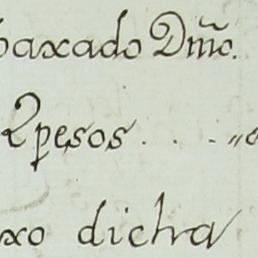 baxado Dmo.
2 pesos . . . "
xo dicha